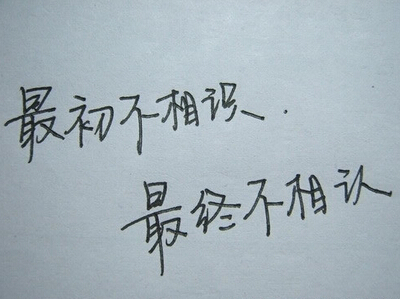 最初不相识.
最终不相认